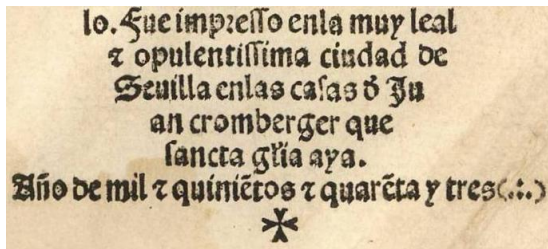 lo. Fue impresso enla muy leal
⁊ opulentissima ciudad de
Seuilla enlas casas ð Ju
an cromberger que
sancta gl̃ia aya.
Año de mil ⁊ quiniẽtos ⁊ quarẽta y tres(.:.)